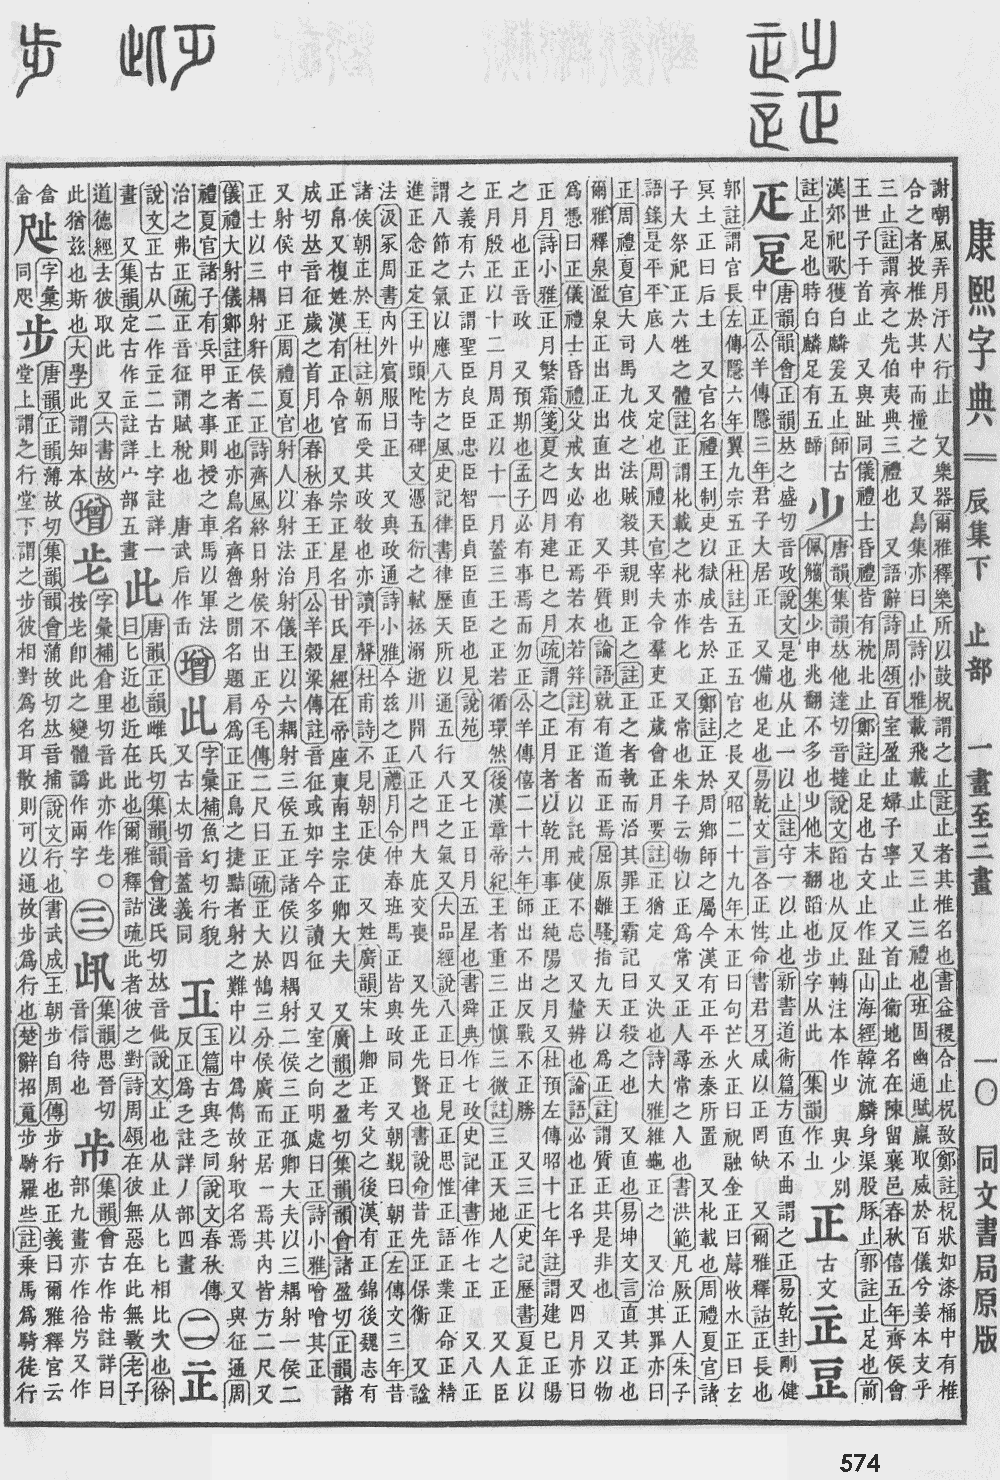 康熙字典 辰集下 止部 一畫至三畫 一〇 同文書局原版
謝嘲風弄月汙人行止 又樂器爾雅釋樂所以鼓柷謂之止註止者其椎名也書益稷合止柷敔鄭註柷狀如漆桶中有椎
合之者投椎於其中而撞之 又鳥集亦曰止詩小雅載飛載止 又三止三禮也班固幽通賦嬴取威於百儀兮姜本支乎
三止註謂齊之先伯夷典三禮也 又語辭詩周頌百室盈止婦子寧止 又首止衞地名在陳留襄邑春秋僖五年齊侯會
王世子于首止 又與趾同儀禮士昏禮皆有枕北止鄭註止足也古文止作趾山海經韓流麟身渠股豚止郭註止足也前
漢郊祀歌獲白麟爰五止師古
註止足也時白麟足有五蹄
唐韻集韻𠀤他達切音撻說文蹈也从反止轉注本作少 與少別
佩觿集少申兆翻不多也少他末翻蹈也步字从此 集韻作𣥂
正 古文
唐韻韻會正韻𠀤之盛切音政說文是也从止一以止註守一以止也新書道術篇方直不曲謂之正易乾卦剛健
中正公羊傳隱三年君子大居正 又備也足也易乾文言各正性命書君牙咸以正罔缺 又爾雅釋詁正長也
郭註謂官長左傳隱六年翼九宗五正杜註五正五官之長又昭二十九年木正曰句芒火正曰祝融金正曰蓐收水正曰玄
冥土正曰后土 又官名禮王制史以獄成告於正鄭註正於周鄉師之屬今漢有正平丞秦所置 又杫載也周禮夏官諸
子大祭祀正六牲之體註正謂杫載之杫亦作七 又常也朱子云物以正為常又正人尋常之人也書洪範凡厥正人朱子
語錄是平平底人 又定也周禮天官宰夫令羣吏正歲會正月要註正猶定 又決也詩大雅維龜正之 又治其罪亦曰
正周禮夏官大司馬九伐之法賊殺其親則正之註正之者執而治其罪王霸記曰正殺之也 又直也易坤文言直其正也
爾雅釋泉濫泉正出正出直出也 又平質也論語就有道而正焉屈原離騷指九天以為正註謂質正其是非也 又以物
為憑曰正儀禮士昏禮父戒女必有正焉若衣若笄註有正者以託戒使不忘 又釐辨也論語必也正名乎 又四月亦曰
正月詩小雅正月繁霜箋夏之四月建巳之月疏謂之正月者以乾用事正純陽之月又杜預左傳昭十七年註謂建巳正陽
之月也正音政 又預期也孟子必有事焉而勿正公羊傳僖二十六年師出不正反戰不正勝 又三正史記歷書夏正以
正月殷正以十二月周正以十一月蓋三王之正若循環然後漢章帝紀王者重三正愼三微註三正天地人之正 又人臣
之義有六正謂聖臣良臣忠臣智臣貞臣直臣也見說苑 又七正日月五星也書舜典作七政史記律書作七正 又八正
謂八節之氣以應八方之風史記律書律歷天所以通五行八正之氣又大品經說八正曰正見正思惟正語正業正命正精
進正念正定王屮頭陀寺碑文憑五衍之軾拯溺逝川開八正之門大庇交喪 又先正先賢也書說命昔先正保衡 又諡
法汲冢周書內外賓服曰正 又與政通詩小雅今茲之正禮月令仲春班馬正皆與政同 又朝覲曰朝正左傳文三年昔
諸侯朝正於王杜註朝而受其政敎也亦讀平聲杜甫詩不見朝正使 又姓廣韻宋上卿正考父之後漢有正錦後魏志有
正帛又複姓漢有正令官 又宗正星名甘氏星經在帝座東南主宗正卿大夫 又廣韻之盈切集韻韻會諸盈切正韻諸
成切𠀤音征歲之首月也春秋春王正月公羊穀梁傳註音征或如字今多讀征 又室之向明處曰正詩小雅噲噲其正
又射侯中曰正周禮夏官射人以射法治射儀王以六耦射三侯五正諸侯以四耦射二侯三正孤卿大夫以三耦射一侯二
正士以三耦射豻侯二正詩齊風終日射侯不出正兮毛傳二尺曰正疏正大於鵠三分侯廣而正居一焉其內皆方二尺又
儀禮大射儀鄭註正者正也亦鳥名齊魯之閒名題肩為正正鳥之捷點者射之難中以中為雋故射取名焉 又與征通周
禮夏官諸子有兵甲之事則授之車馬以軍法
治之弗正疏正音征謂賦稅也 唐武后作𠙺
增 此 字彙補魚幻切行貌
又古太切音蓋義同
玉篇古與之同說文春秋傳
反正為乏註詳丿部四畫
二 㱏
說文正古从二作㱏二古上字註詳一
畫 又集韻定古作㱏註詳宀部五畫
此 唐韻正韻雌氏切集韻韻會淺氏切𠀤音佌說文止也从止从匕匕相比次也徐
曰匕近也近在此也爾雅釋詁疏此者彼之對詩周頌在彼無惡在此無斁老子
道德經去彼取此 又六書故
此猶茲也斯也大學此謂知本
增 字彙補倉里切音此亦作𣥄〇
按𣥄卽此之變體譌作兩字
三 集韻思晉切
音信待也
集韻會古作歬註詳曰
部九畫亦作㣛屶又作
㑹
㑹
字彙
同咫
步 唐韻正韻薄故切集韻韻會蒲故切𠀤音捕說文行也書武成王朝步自周傳步行也正義曰爾雅釋宮云
堂上謂之行堂下謂之步彼相對為名耳散則可以通故步為行也楚辭招䰟步騎羅些註乘馬為騎徒行
574